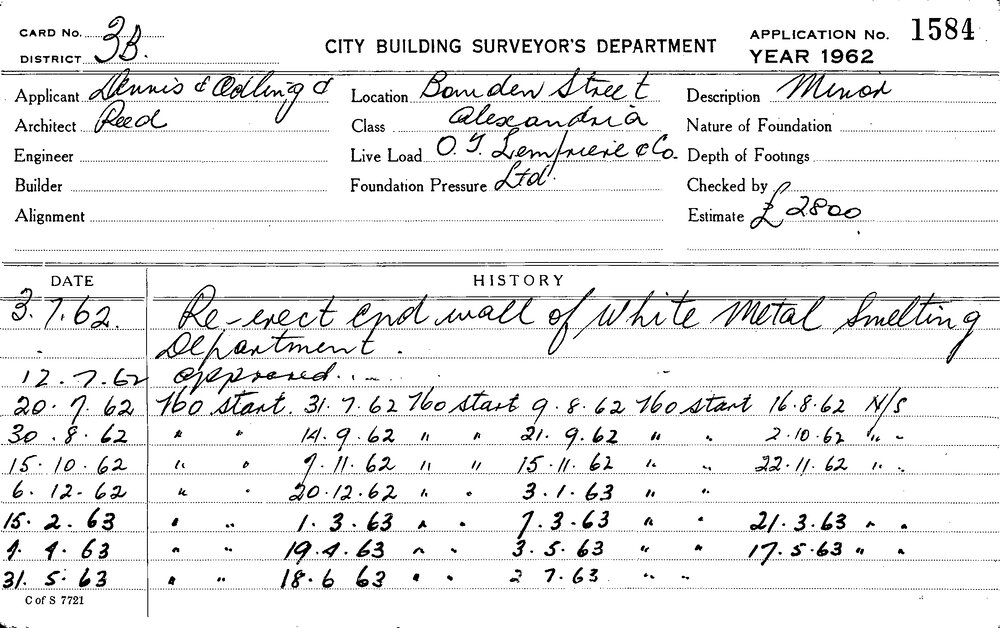 CARD No. 3B.
DISTRICT
CITY BUILDING SURVEYOR'S DEPARTMENT
APPLICATION No. 1584
YEAR 1962
Applicant Dennis & Odling &
Architect Reed
Engineer
Builder
Alignment
Location Bowden Street
Class Alexandria
Live Load O. T. Lempriere & Co.
Foundation Pressure Ltd.
Description Minor
Nature of Foundation
Depth of Footings
Checked by
Estimate £ 2800
DATE HISTORY
3.7.62. Re-erect end wall of White Metal Smelting
Department.
12.7.62 approved...
20.7.62 No start. 31.7.62 No start 9.8.62 No start 16.8.62 N/S
30.8.62 " " 14.9.62 " " 21.9.62 " " 2.10.62 " "
15.10.62 " " 7.11.62 " " 15.11.62 " " 22.11.62 " "
6.12.62 " " 20.12.62 " " 3.1.63 " "
15.2.63 " " 1.3.63 " " 7.3.63 " " 21.3.63 " "
4.4.63 " " 19.4.63 " " 3.5.63 " " 17.5.63 " "
31.5.63 " " 18.6 63 " " 2 7.63 " "
C of S 7721